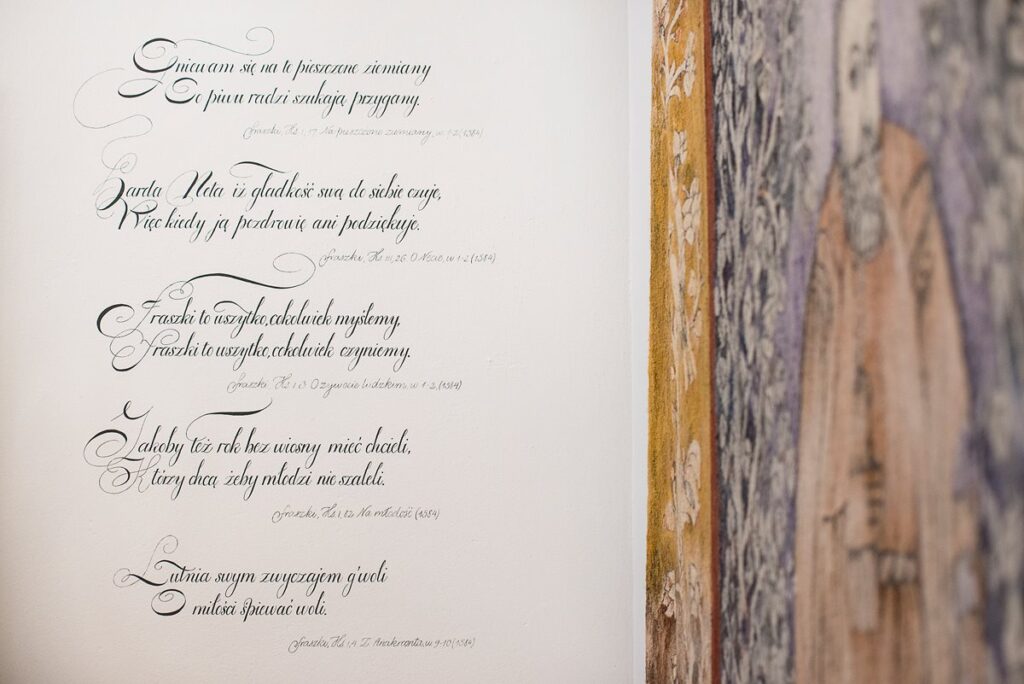 Gniewam się na te pieszczone ziemiany
Co piwu radzi szukają przygany.
fraszka, Ks. I, 17. Na pieszczone ziemiany, w. 1-2 (1584)
Harda Neta iż gładkość swą do siebie czuje,
Więc kiedy ją pozdrowię ani podziękuje.
fraszka, Ks. III, 26. O Necie, w 1-2 (1584)
Fraszki to wszytko, cokolwiek myślemy,
Fraszki to wszytko, cokolwiek czyniemy.
fraszka Ks. I 3. O żywocie ludzkim, w 1-2, (1584)
Jakoby też rok bez wiosny mieć chcieli,
Którzy chcą żeby młodzi nie szaleli.
fraszka, Ks. I, 82. Na młodość (1584)
Lutnia swym zwyczajem g'woli
O miłości śpiewać woli.
fraszka, Ks. I, 4. Z Anakreonta, w 9-10 (1584)